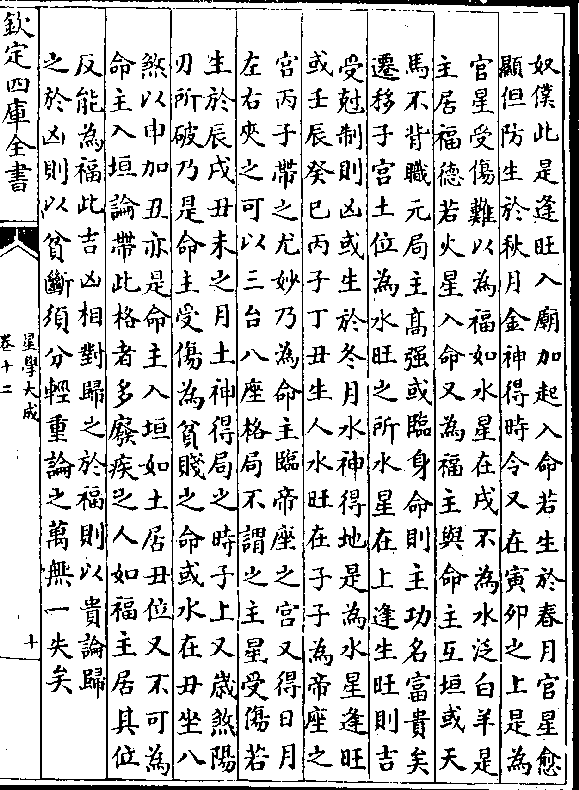 奴僕此是逢旺入廟加起入命若生於春月官星愈
顯但防生於秋月金神得時令又在寅夘之上是為
官星受傷難以為福如水星在戌不為水泛白羊是
主居福德若火星入命又為福主與命主互垣或天
馬不背職元局主高强或臨身命則主功名富貴矣
遷移子宫土位為水旺之所水星在上逢生旺則吉
受尅制則凶或生於冬月水神得地是為水星逢旺
或壬辰癸巳丙子丁丑生人水旺在子子為帝座之
宫丙子帶之尤妙乃為命主臨帝座之宫又得日月
左右夾之可以三台八座格局不謂之主星受傷若
生於辰戌丑未之月土神得局之時子上又歲煞陽
刃所破乃是命主受傷為貧賤之命或水在丑坐八
煞以申加丑亦是命主入垣如土居丑位又不可為
命主入垣論帶此格者多廢疾之人如福主居其位
反能為福此吉凶相對歸之於福則以貴論歸
之於凶則以貧斷須分輕重論之萬無一失矣
欽定四庫全書
星學大成
卷十二
十